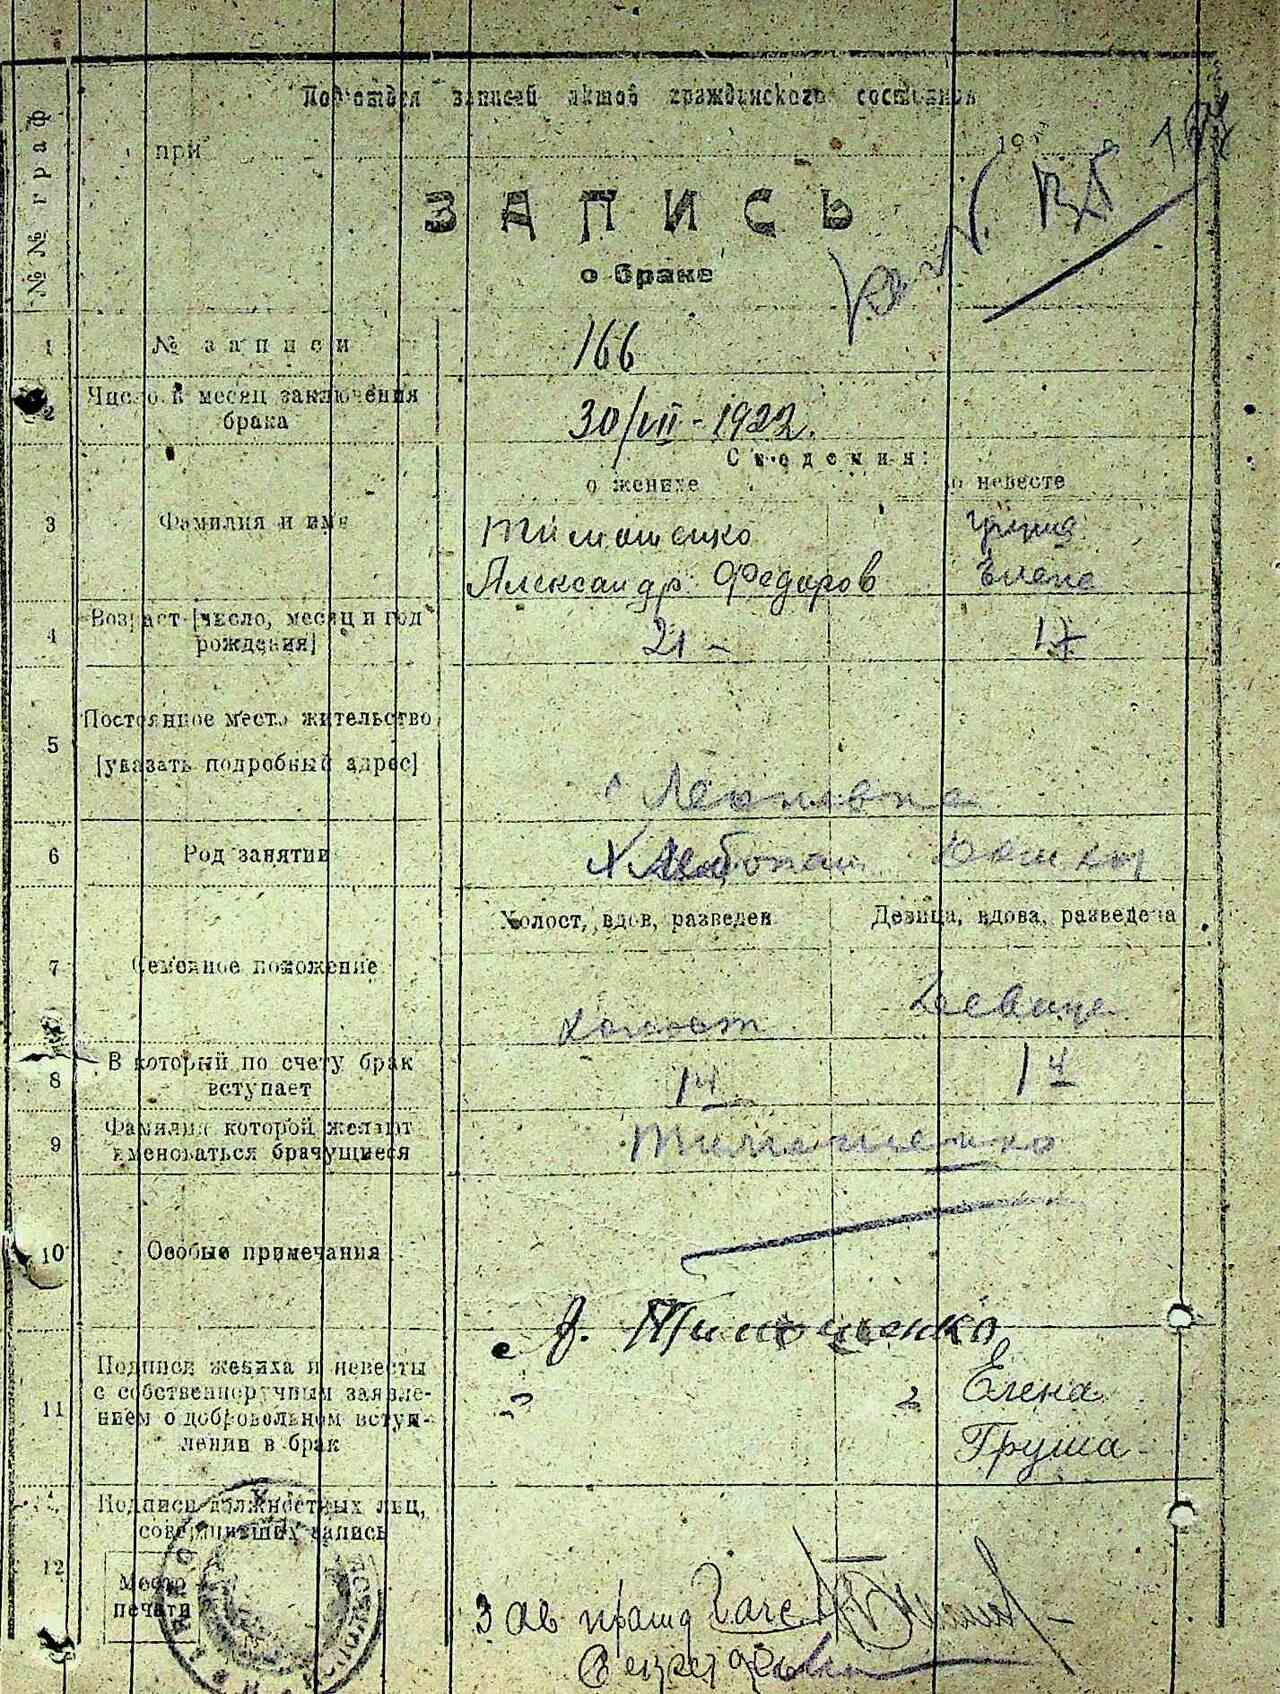 Подотдел записей актов гражданского состояния
при 19
ЗАПИСЬ
о браке
№№ граф
1 № записи 166
2 Число и месяц заключения брака 30/VII - 1922.
Сведения:
о женихе о невесте
3 Фамилия и имя Тимошенко Груша
Александр Федоров Елена
4 Возраст [число, месяц и год рождения] 21 - 17
5 Постоянное место жительство
[указать подробный адрес]
с
6 Род занятий Хлебопаш
Холост, вдов, разведен Девица, вдова, разведена
7 Семейное положение холост Девица
8 В который по счету брак вступает 1й 1й
9 Фамилия которой желают именоваться брачущиеся Тимошенко
10 Особые примечания
А. Тимошенко
11 Подписи жениха и невесты с собственноручным заявлением о добровольном вступлении в брак
Елена
Груша
12 Подписи должностных лиц, совершивших запись
Место печати
Зав